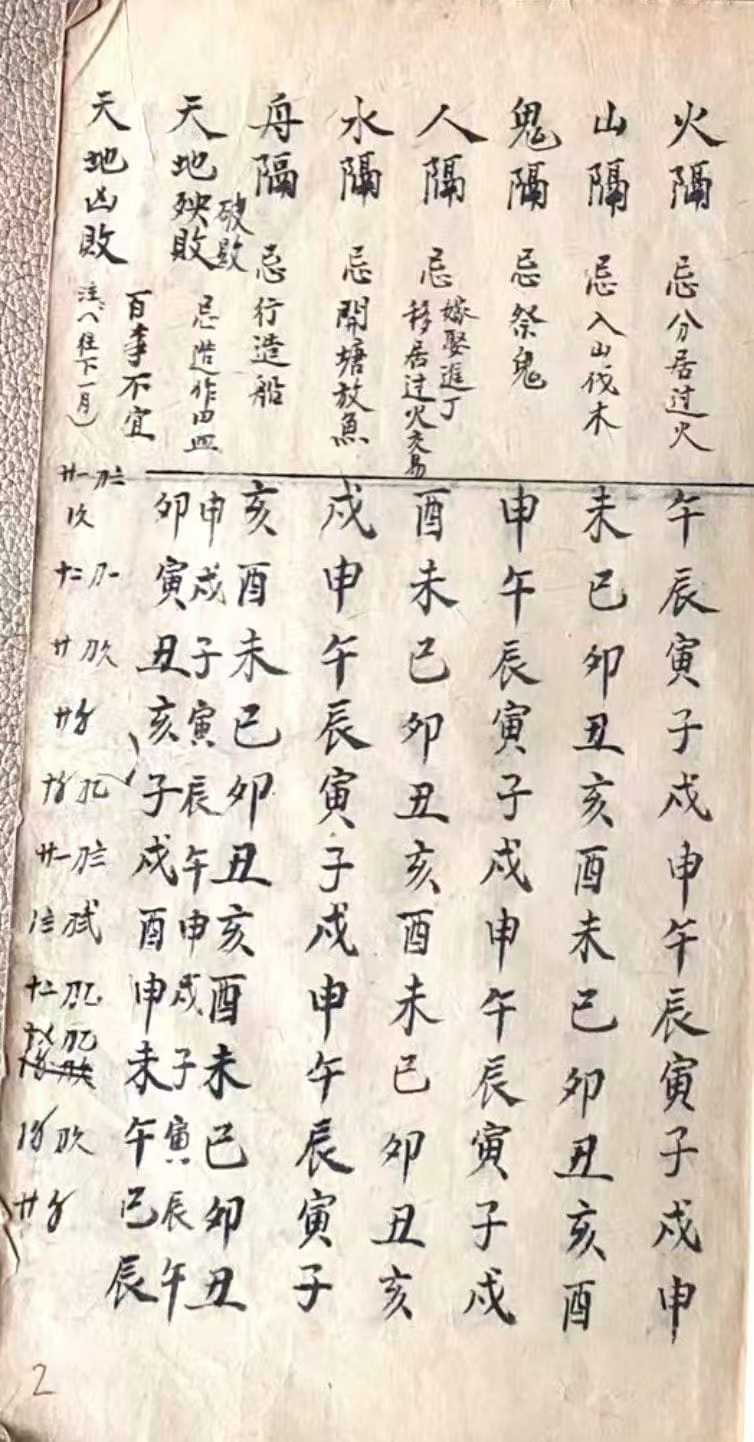 火隔 忌分居过火 午辰寅子戌申午辰寅子戌申
山隔 忌入山伐木 未巳卯丑亥酉未巳卯丑亥酉
鬼隔 忌祭鬼 申午辰寅子戌申午辰寅子戌
人隔 忌 嫁娶進丁
移居过火交易 酉未巳卯丑亥酉未巳卯丑亥
水隔 忌開塘放魚 戌申午辰寅子戌申午辰寅子
舟隔 忌行造船 亥酉未巳卯丑亥酉未巳卯丑
破敗 申戌子寅辰午申戌子寅辰午
天地殃敗 忌造作 卯寅丑亥子戌酉申未午巳辰
天地凶敗 百事不宜
往下一月
2